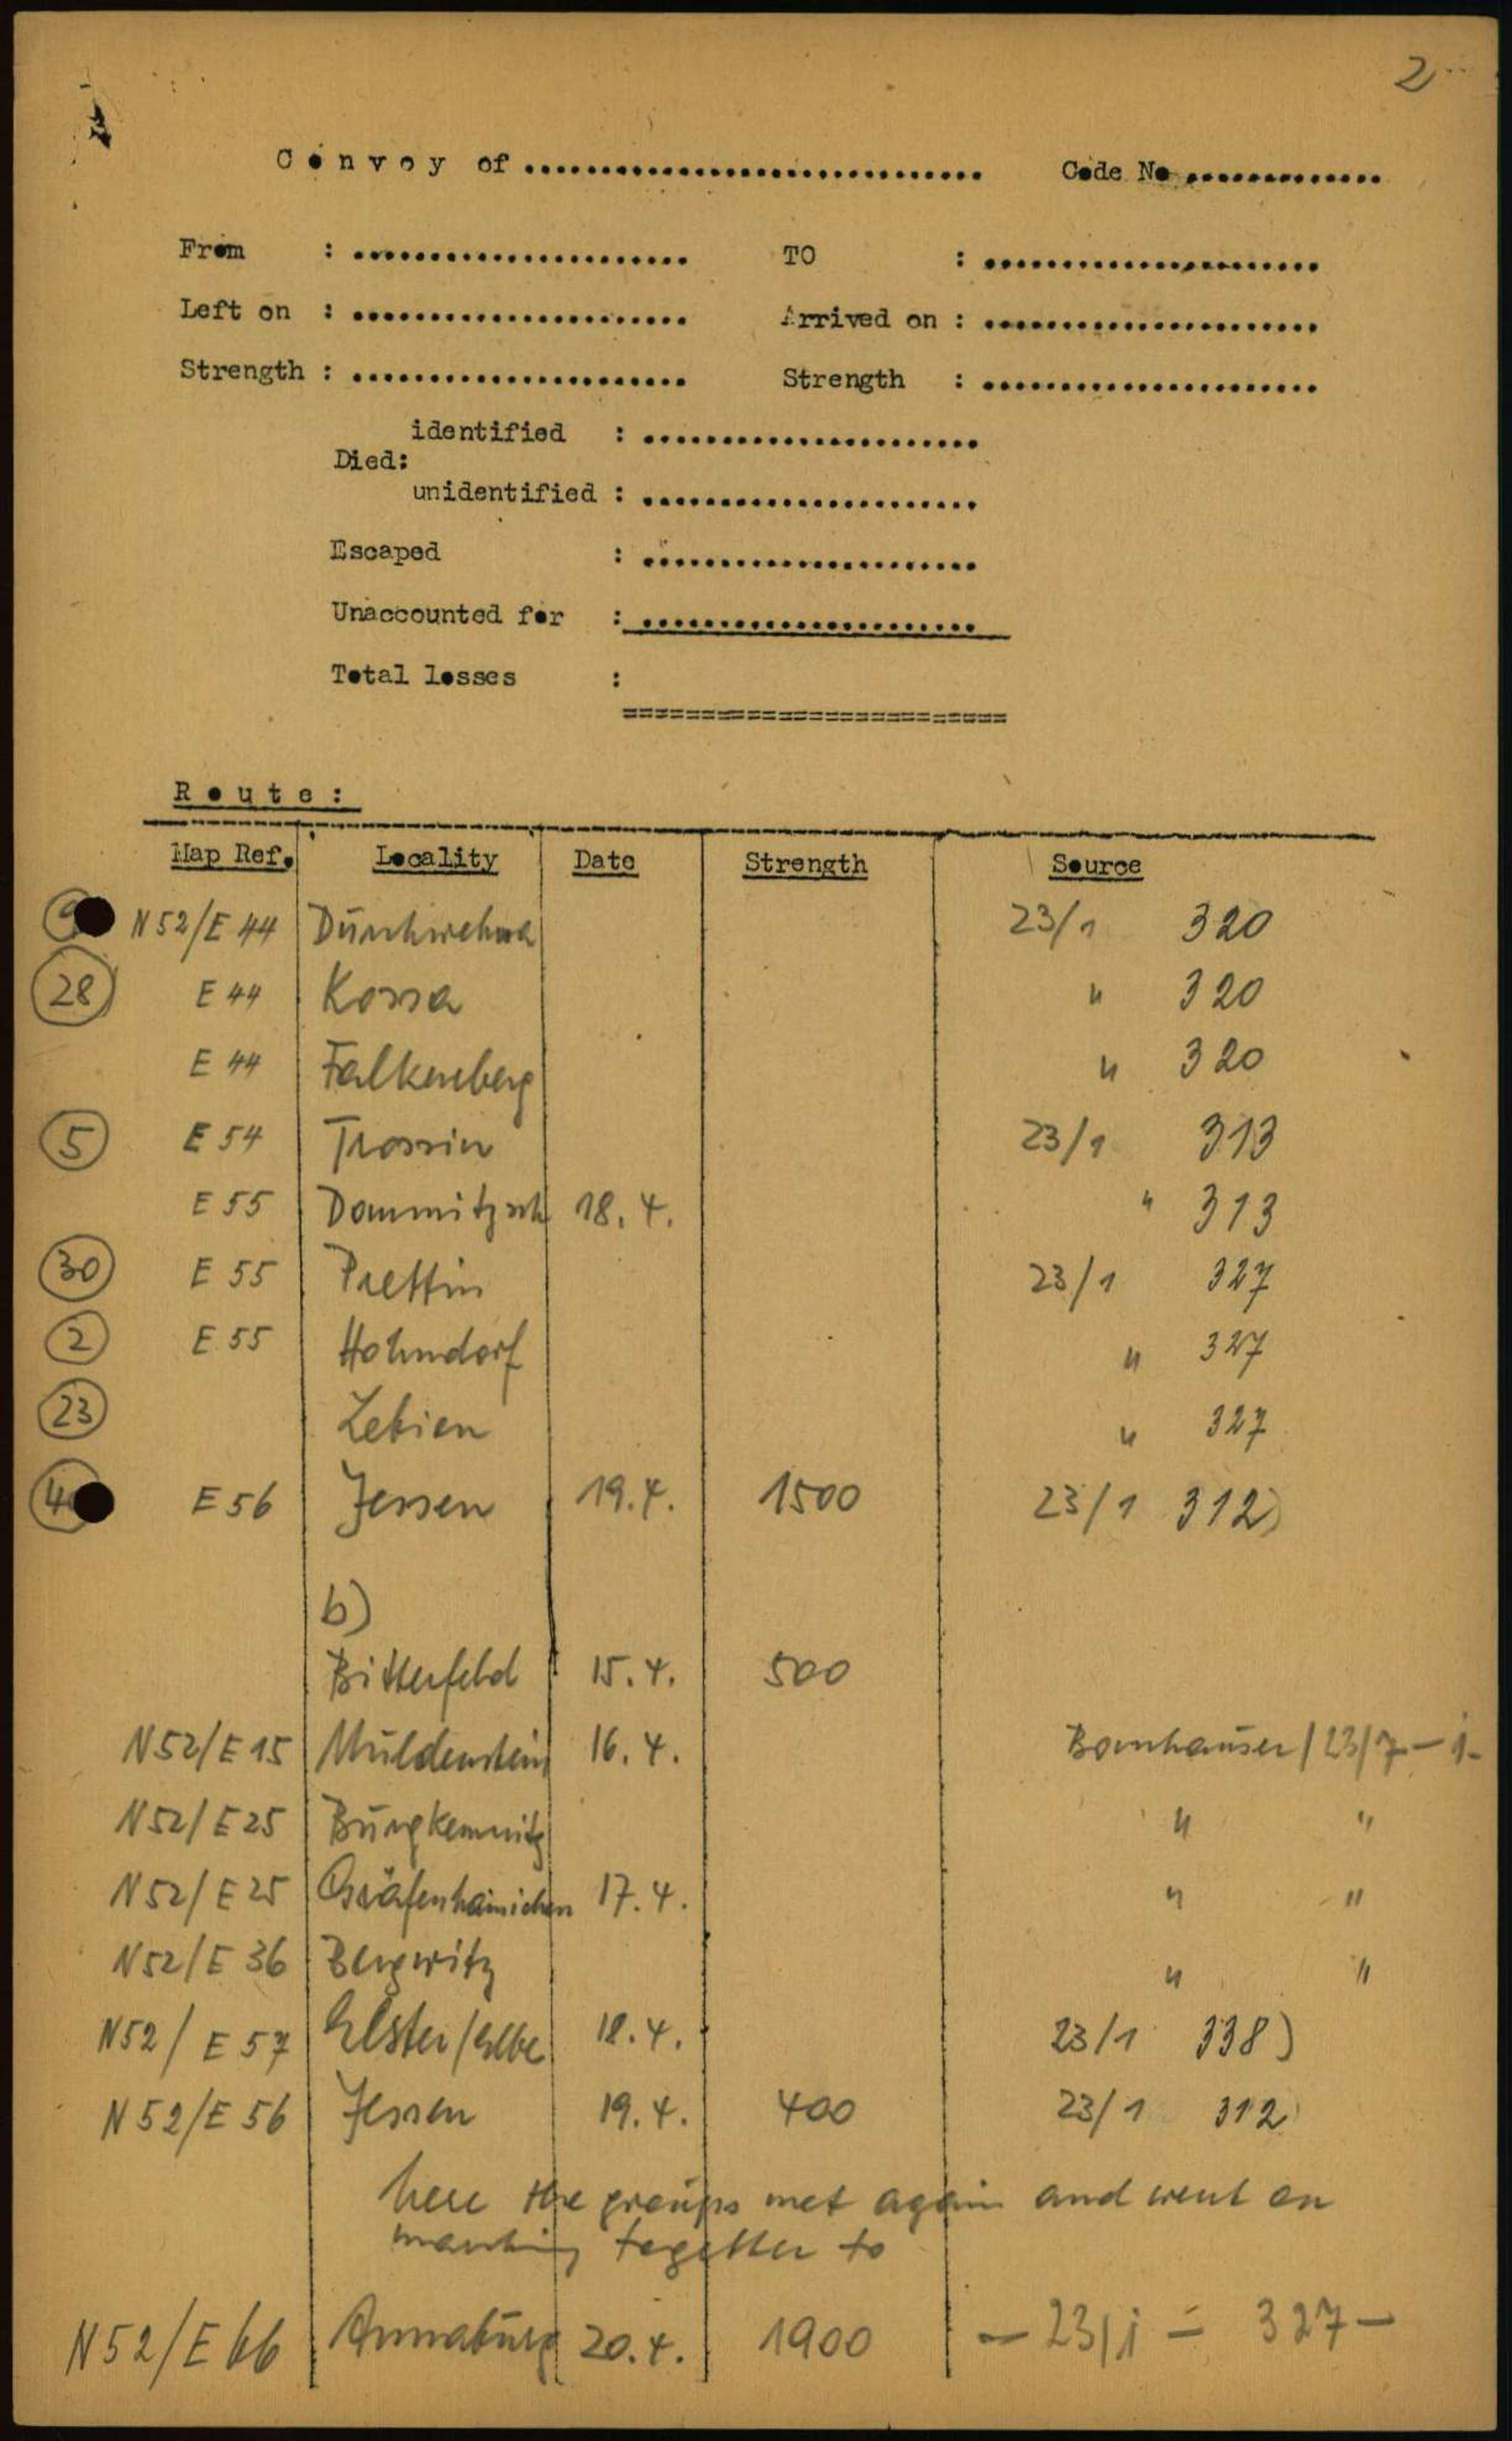 2
Convoy of .............................. Code No .............
From : ...................... TO : ......................
Left on : ...................... Arrived on : ......................
Strength : ...................... Strength : ......................
identified : ......................
Died:
unidentified : ......................
Escaped : ......................
Unaccounted for : ......................
Total losses :
=========================
Route:
Map Ref. Locality Date Strength Source
N52/E 44 Durchwehna 23/1 320
28 E 44 Kossa " 320
E 44 Falkenberg " 320
5 E 54 Trossin 23/1 313
E 55 Dommitzsch 18.4. " 313
30 E 55 Prettin 23/1 327
2 E 55 Hohndorf " 327
23 Lebien " 327
E 56 Jessen 19.4. 1500 23/1 312)
b)
Bitterfeld 15.4. 500
N52/E 15 Muldenstein 16.4. Bornhauser/23/7 - 1-
N52/E 25 Burgkemnitz " "
N52/E 25 Gräfenhainichen 17.4. " "
N52/E 36 Bergwitz " "
N52/E 57 Elster/Elbe 18.4. 23/1 338)
N52/E 56 Jessen 19.4. 400 23/1 312)
here the groups met again and went on
marching together to
N52/E 66 Annaburg 20.4. 1900 - 23/1 = 327 -